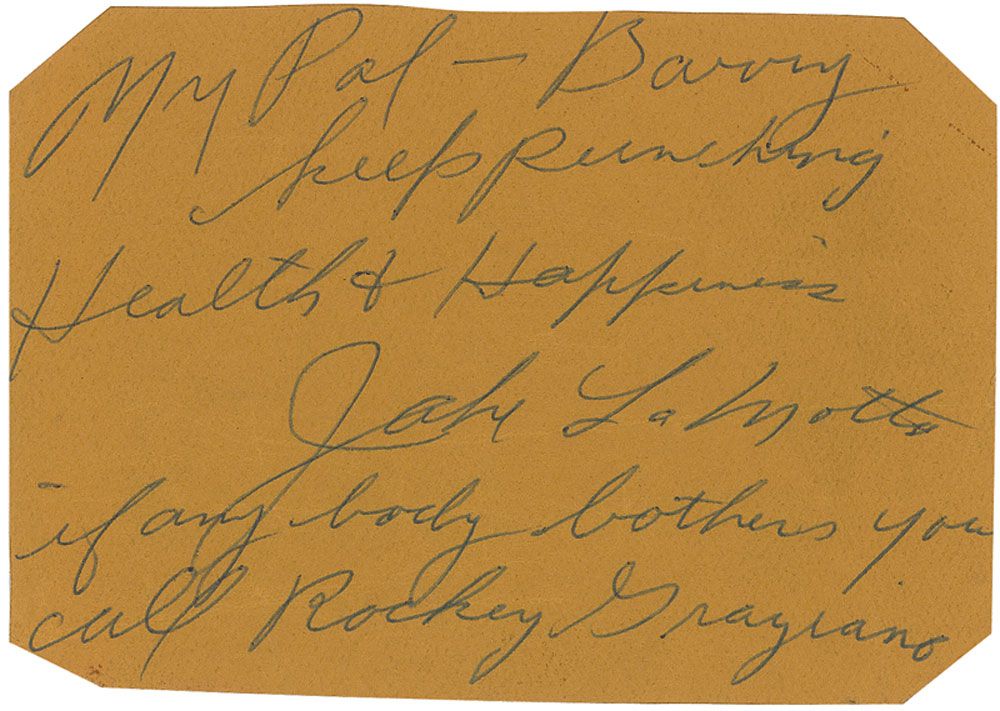 My Pal - Barry
keep punching
Health & Happiness
Jake LaMotta
if any body bothers you
call Rockey Graziano